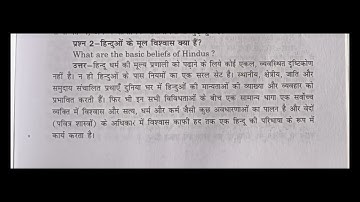 प्रश्न 2–हिन्दुओं के मूल विश्वास क्या हैं?
What are the basic beliefs of Hindus ?
उत्तर–हिन्दु धर्म की मूल्य प्रणाली को पढ़ाने के लिये कोई एकल, व्यवस्थित दृष्टिकोण
नहीं है। न ही हिन्दुओं के पास नियमों का एक सरल सेट है। स्थानीय, क्षेत्रीय, जाति और
समुदाय संचालित प्रथाएँ दुनिया भर में हिन्दुओं की मान्यताओं की व्याख्या और व्यवहार को
प्रभावित करती हैं। फिर भी इन सभी विविधताओं के बीच एक सामान्य धागा एक सर्वोच्च
व्यक्ति में विश्वास और सत्य, धर्म और कर्म जैसी कुछ अवधारणाओं का पालन है और वेदों
(पवित्र शास्त्रों) के अधिकार में विश्वास काफी हद तक एक हिन्दू की परिभाषा के रूप में
कार्य करता है।